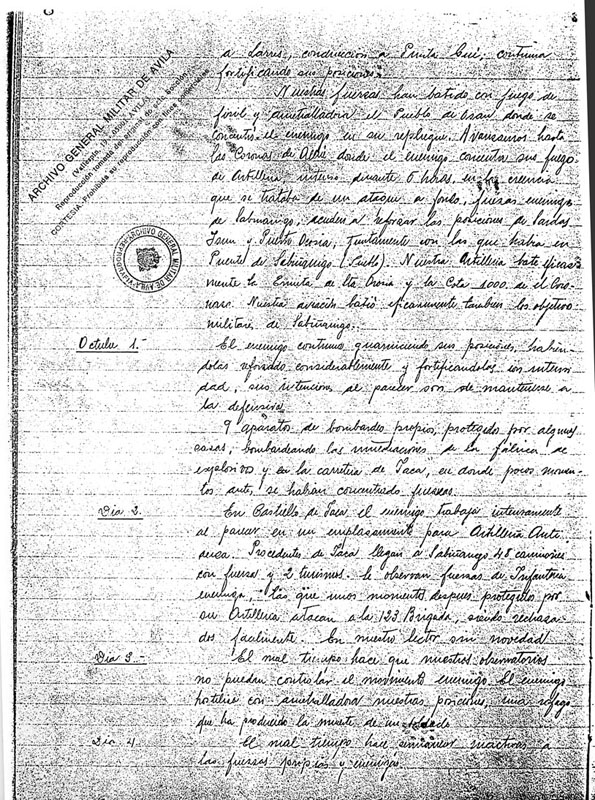 ARCHIVO GENERAL MILITAR DE AVILA
CORTESIA.-Prohibida su reproducción con fines comerciales
a Larres, conduccion a Ermita continua
fortificando sus posiciones.
Nuestras fuerzas han batido con fuego de
fusil y ametralladora el Pueblo de donde se
concentro el enemigo en su repliegue. Avanzamos hasta
las Coronas de donde el enemigo concentra sus fuegos
de Artilleria intenso durante horas, en la creencia
que se trataba de un ataque a fondo, fuerzas enemigas
de Sabiñanigo, acuden a reforzar las posiciones de Sardas
Isun y juntamente con las que habia en
Puente de Sabiñanigo Nuestra Artilleria bate eficaz-
mente la Ermita de Sta Orosia y la Cota 1000 de el
Nuestra aviación batió eficazmente tambien los objetivos
militares de Sabiñanigo.
Octubre 1.-
El enemigo continua guarneciendo sus posiciones, habien-
dolas reforzado considerablemente y fortificandolas con intensi
dad, sus intenciones al parecer son de mantenerse a
la defensiva
9 aparatos de bombardeo propios, protegidos por algunos
casas, bombardeando las inmediaciones de la fábrica de
explosivos y en la carretera de Jaca, en donde pocos momen-
tos antes, se habian concentrado fuerzas.
Dia 2.-
En Castiello de Jaca el enemigo trabaja intensamente
al parecer en un emplasamiento para Artilleria Anti
aerea. Procedentes de Jaca llegan á Sabiñanigo 48 camiones
con fuerza y 2 turismos. Se observan fuerzas de Infanteria
enemiga, las que unos momentos despues protegidos por
su Artilleria atacan a la 123 Brigada, siendo rechaza-
dos facilmente. En nuestro sector sin novedad
Dia 3.-
El mal tiempo hace que nuestros observatorios
no puedan controlar el movimiento enemigo. El enemigo
hostiliza con ametralladora nuestras posiciones, una rafaga
que ha producido la muerte de un soldado
Dia 4
El mal tiempo hace inactivas a
las fuerzas propias y enemigas